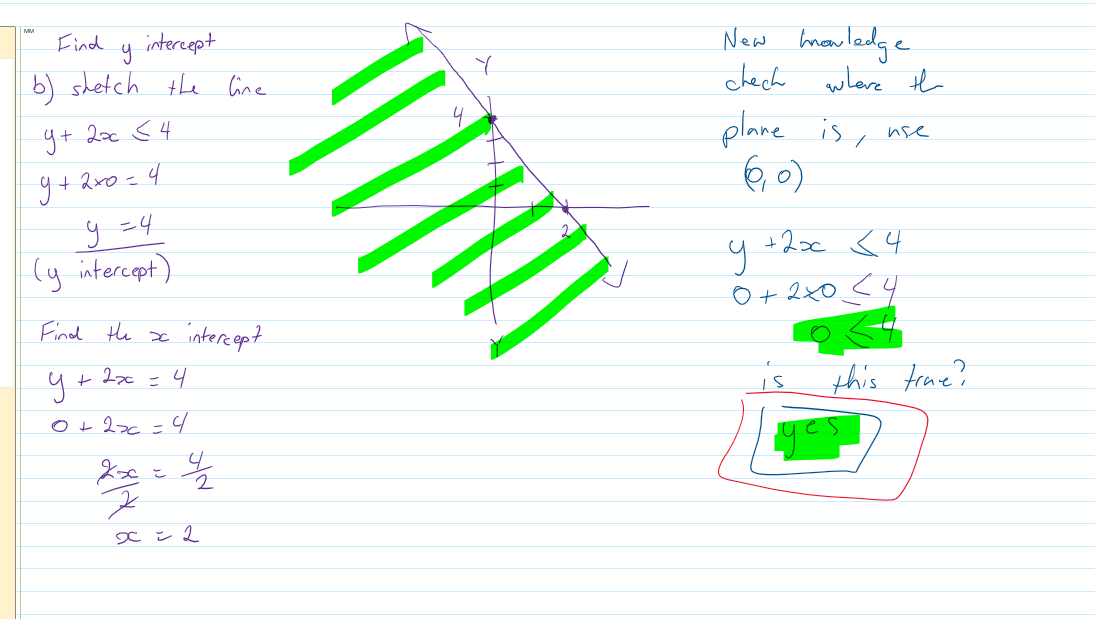 MM
Find y intercept
b) sketch the line
y + 2x ≤ 4
y + 2x0 = 4
y = 4
(y intercept)
Find the x intercept
y + 2x = 4
0 + 2x = 4
2x/2 = 4/2
x = 2
Y
4
1
2
Y
New knowledge
check where the
plane is, use
(0,0)
y + 2x ≤ 4
0 + 2x0 ≤ 4
0 ≤ 4
is this true?
yes